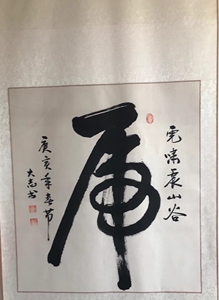 虎啸震山谷
虎
庚寅年春节
大志书